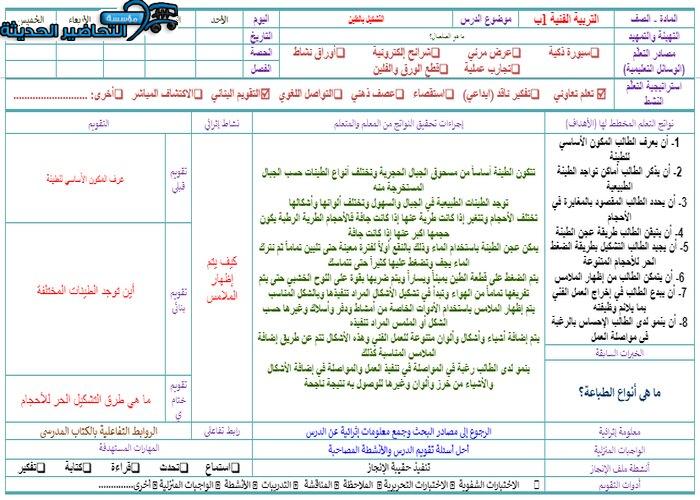 المادة - الصف
التربية الفنية 1ب
موضوع الدرس
التشكيل بالطين
اليوم
الأحد
الأربعاء
الخميس
مؤسسة
التحاضير الحديثة
التهيئة والتمهيد
ما هو الصلصال؟
التاريخ
مصادر التعلم
(الوسائل التعليمية)
سبورة ذكية
عرض مرئي
شرائح إلكترونية
أوراق نشاط
تجارب عملية
قطع الورق والفلين
الحصة
الفصل
استراتيجية التعلم
النشط
تعلم تعاوني
تفكير ناقد (ابداعي)
استقصاء
عصف ذهني
التواصل اللغوي
التقويم البنائي
الاكتشاف المباشر
أخرى: ........................
نواتج التعلم المخطط لها (الأهداف)
إجراءات تحقيق النواتج من المعلم والمتعلم
نشاط إثرائي
التقويم
1- أن يعرف الطالب المكون الأساسي
للطينة
2- أن يذكر الطالب أماكن تواجد الطينة
الطبيعية
3- أن يحدد الطالب المقصود بالمغايرة في
الأحجام
4- أن يتيقن الطالب طريقة عجن الطينة
5- أن يجيد الطالب التشكيل بطريقة الضغط
الحر للأحجام المتنوعة
6- أن يتمكن الطالب من إظهار الملامس
7- أن يبدع الطالب في إخراج العمل الفني
بما يلائم وظيفته
8- أن ينمو لدى الطالب الإحساس بالرغبة
في مواصلة العمل
الخبرات السابقة
ما هي أنواع الطباعة؟
تتكون الطينة أساساً من مسحوق الجبال الحجرية وتختلف أنواع الطينات حسب الجبال
المستخرجة منه
توجد الطينات الطبيعية في الجبال والسهول وتختلف ألوانها وأشكالها
تختلف الأحجام وتتغير إذا كانت طرية عنها إذا كانت جافة فالأحجام الطرية الرطبة يكون
حجمها اكبر عنها إذا كانت جافة
يمكن عجن الطينة باستخدام الماء وذلك بالنقع أولاً لفترة معينة حتى تلين تماماً ثم نترك
الماء يجف ونضغط عليها كثيراً حتى تتماسك
يتم الضغط على قطعة الطين يميناً ويساراً ويتم ضربها بقوة على اللوح الخشبي حتى يتم
تفريغها تماماً من الهواء ونبدأ في تشكيل الأشكال المراد تنفيذها وبالشكل المناسب
يتم إظهار الملامس باستخدام الأدوات الخاصة من أمشاط ودفر وأسلاك وغيرها حسب
شكل أو الملمس المراد تنفيذه
يتم إضافة أشياء وأشكال وألوان متنوعة للعمل الفني وهذه الأشكال تتم عن طريق إضافة
الملامس المناسبة كذلك
ينمو لدى الطالب رغبة في المواصلة في تنفيذ العمل والمواصلة في إضافة الأشكال
والأشياء من خرز وألوان وغيرها للوصول به نتيجة ناجحة
كيف يتم
إظهار
الملامس
تقويم
قبلي
عرف المكون الأساسي للطينة
تقويم
بنائي
أين توجد الطينات المختلفة
تقويم
ختام
ي
ما هي طرق التشكيل الحر للأحجام
معلومة إثرائية
الرجوع إلى مصادر البحث وجمع معلومات إثرائية عن الدرس
رابط تفاعلي
الروابط التفاعلية بالكتاب المدرسي
الواجبات المنزلية
أحل أسئلة تقويم الدرس والأنشطة المصاحبة
المهارات المستهدفة
أنشطة ملف الإنجاز
تنفيذ حقيبة الإنجاز
استماع
تحدث
قراءة
كتابة
تفكير
أدوات التقويم
الاختبارات الشفوية
الاختبارات التحريرية
الملاحظة
المناقشة
التدريبات
الأنشطة
الواجبات المنزلية
أخرى..............